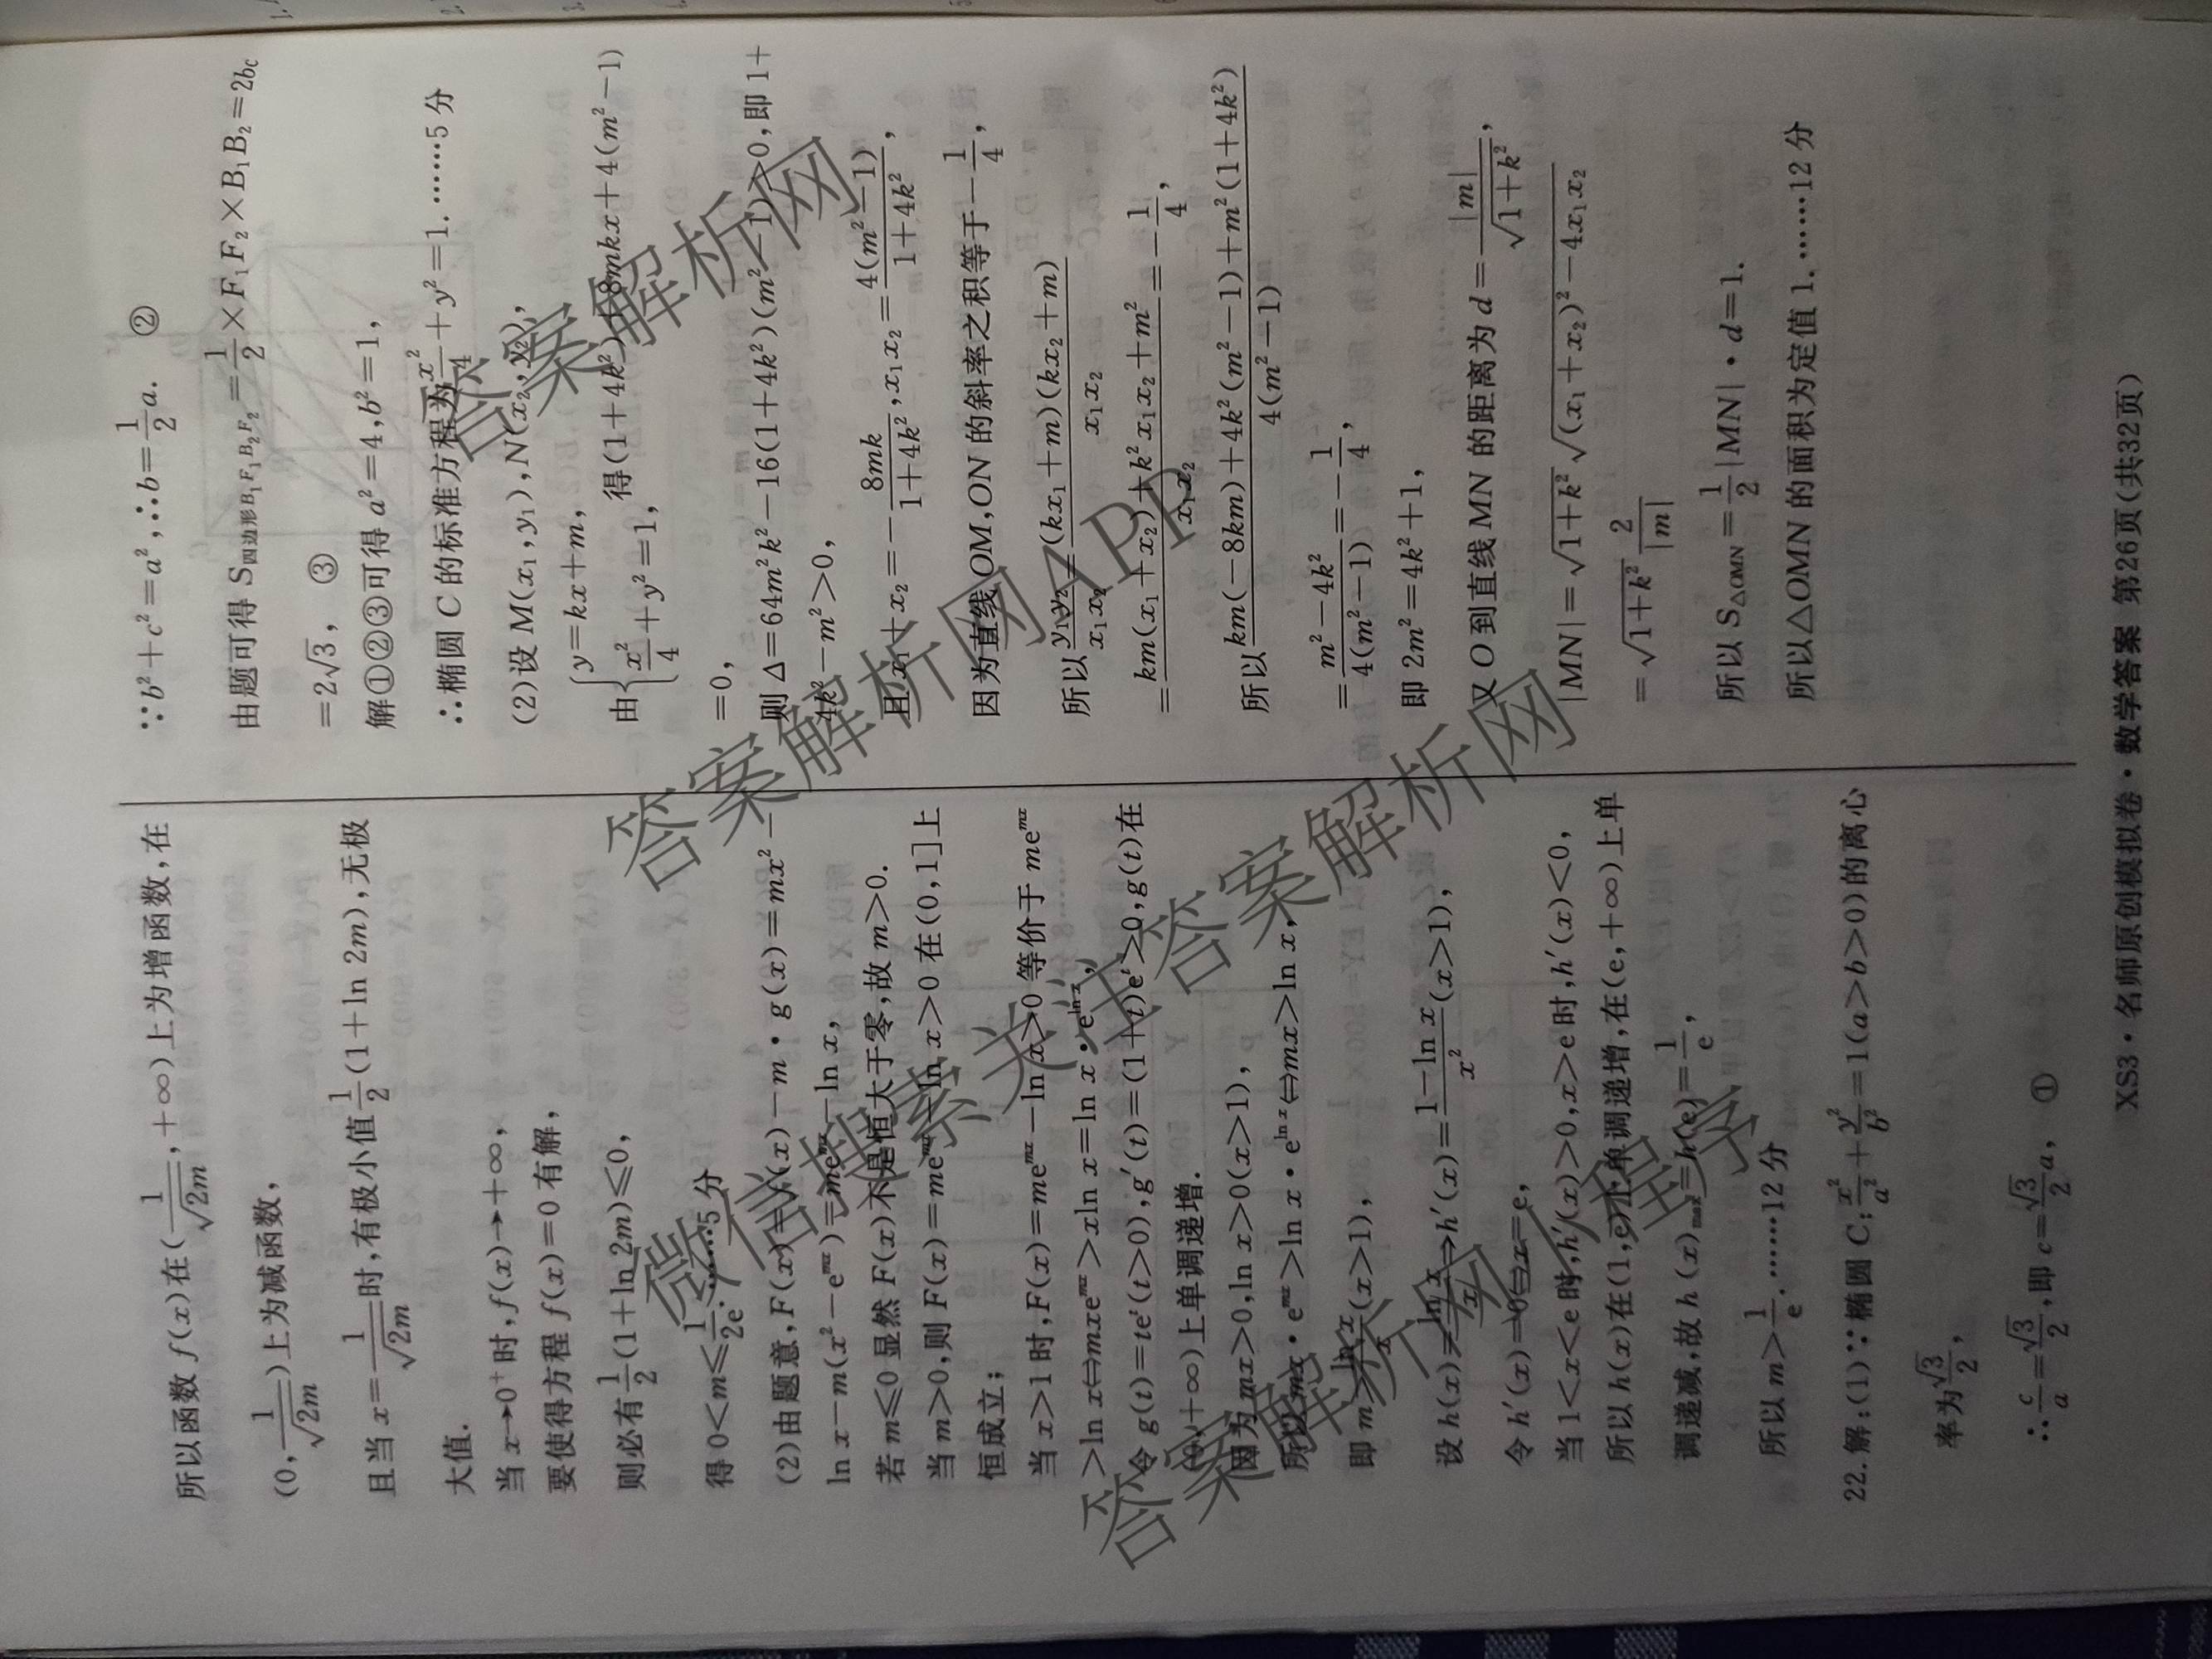 所以函数 f(x)在(1/√(2m),+∞)上为增函数,在
(0,1/√(2m))上为减函数,
且当 x=1/√(2m)时,有极小值1/2(1+ln 2m),无极
大值.
当 x→0⁺时,f(x)→+∞,
要使得方程 f(x)=0 有解,
则必有1/2(1+ln 2m)≤0,
得 0<m≤1/2e.……5 分
(2)由题意,F(x)=f(x)-m·g(x)=mx²-
ln x-m(x²-e^{mx})=me^{mx}-ln x,
若 m≤0 显然 F(x)不是恒大于零,故 m>0.
当 m>0,则 F(x)=me^{mx}-ln x>0 在(0,1]上
恒成立;
当 x>1 时,F(x)=me^{mx}-ln x>0 等价于 me^{mx}
>ln x⇔mxe^{mx}>xln x=ln x·e^{ln x},
令 g(t)=te^t(t>0),g′(t)=(1+t)e^t>0,g(t)在
(0,+∞)上单调递增.
因为 mx>0,ln x>0(x>1),
所以 mx·e^{mx}>ln x·e^{ln x}⇔mx>ln x,
即 m>ln x/x(x>1),
设 h(x)=ln x/x⇒h′(x)=(1-ln x)/x²(x>1),
令 h′(x)=0⇔x=e,
当 1<x<e 时,h′(x)>0,x>e 时,h′(x)<0,
所以 h(x)在(1,e)上单调递增,在(e,+∞)上单
调递减,故 h(x)_{max}=h(e)=1/e,
所以 m>1/e.……12 分
22.解:(1)∵椭圆 C:x²/a²+y²/b²=1(a>b>0)的离心
率为√3/2,
∴c/a=√3/2,即 c=√3/2 a, ①
∵b²+c²=a²,∴b=1/2 a. ②
由题可得 S四边形B₁F₁B₂F₂=1/2×F₁F₂×B₁B₂=2bc
=2√3, ③
解①②③可得 a²=4,b²=1,
∴椭圆 C 的标准方程为x²/4+y²=1.……5 分
(2)设 M(x₁,y₁),N(x₂,y₂),
由{y=kx+m, x²/4+y²=1,得(1+4k²)+8mkx+4(m²-1)
=0,
则 Δ=64m²k²-16(1+4k²)(m²-1)>0,即 1+
4k²-m²>0,
且 x₁+x₂=-8mk/(1+4k²),x₁x₂=4(m²-1)/(1+4k²),
因为直线 OM,ON 的斜率之积等于-1/4,
所以y₁y₂/x₁x₂=(kx₁+m)(kx₂+m)/x₁x₂
=(km(x₁+x₂)+k²x₁x₂+m²)/x₁x₂=-1/4,
所以(km(-8km)+4k²(m²-1)+m²(1+4k²))/4(m²-1)
=(m²-4k²)/4(m²-1)=-1/4,
即 2m²=4k²+1,
又 O 到直线 MN 的距离为 d=|m|/√(1+k²),
|MN|=√(1+k²)√((x₁+x₂)²-4x₁x₂)
=√(1+k²) 2/|m|
所以 S△OMN=1/2|MN|·d=1.
所以△OMN 的面积为定值 1.……12 分
XS3·名师原创模拟卷·数学答案 第26页(共32页)
答案解析网
答案解析网APP
答案解析网